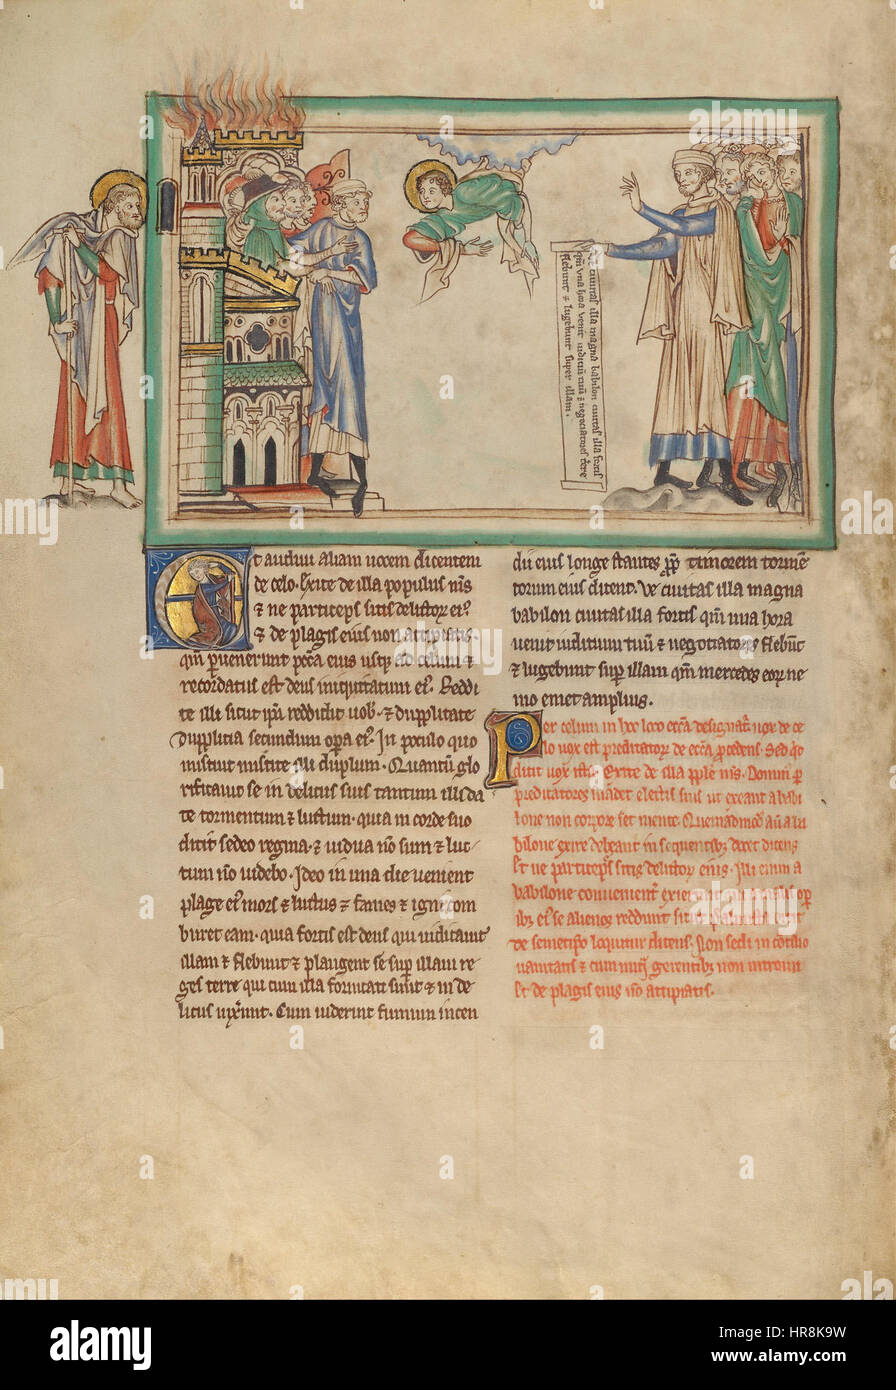 Ve ciuitas illa magna babilon ciuitas illa fortis
qm̄ una hora venit iudiciū tuū ⁊ negociatores terre
flebunt ⁊ lugebunt super illam.
t audiui aliam uocem dicentem
de celo. Exite de illa populus m̄s
⁊ ne participes sitis delictoꝝ ei᷒
⁊ de plagis eius non accipiatis.
qm̄ ꝑuenerunt pccā eius usq; ad celum ⁊
recordatus est deus iniquitatum ei᷒. Reddi
te illi sicut ip̄a reddidit uob᷒. ⁊ dupplicate
dupplicia secundum oꝑa ei᷒. In poculo quo
miscuit miscite illi duplum. Quantū glo
rificauit se in delitiis suis tantum illi da
te tormentum ⁊ luctum. quia in corde suo
dicit sedeo regina. ⁊ uidua nō sum ⁊ luc
tum nō uidebo. Ideo in una die uenient
plage ei᷒ mors ⁊ luctus ⁊ fames ⁊ igni com
buret eam. quia fortis est deus qui iudicauit
illam ⁊ flebunt ⁊ plangent se suꝑ illam re
ges terre qui cum illa fornicati sunt ⁊ in de
liciis uixerunt. Cum uiderint fumum incen
dii eius longe stantes ꝓpt̄ timorem tormen
torum eius dicent. Ve ciuitas illa magna
babilon ciuitas illa fortis qm̄ una hora
uenit iudicium tuū ⁊ negociatores flebūt
⁊ lugebunt suꝑ illam qm̄ merces eoꝝ ne
mo emet amplius.
Per celum in hoc loco eccīa designat᷑ uox de ce
lo uox est predicatoꝝ de eccīa ꝓcedens. Sed qd̄
dicit uox ista. Exite de illa pple m̄s. Domini ꝑ
predicatores mādet electis suis ut exeant a babi
lone non corpore set mente. Quemadmodū aū a ba
bilone exire debeant in sequentib; docet dicens
Et ne participes sitis delictoꝝ eius. Illi enim a
babilone conuenient᷑
ib; ei᷒ se alienos reddunt
de semetipo loquitur dicens. Non sedi in consilio
uanitatis ⁊ cum iniq; gerentib; non introiui
Et de plagis eius nō accipiatis.
alamy
a
alamy
Image ID: HR8K9W
www.alamy.com